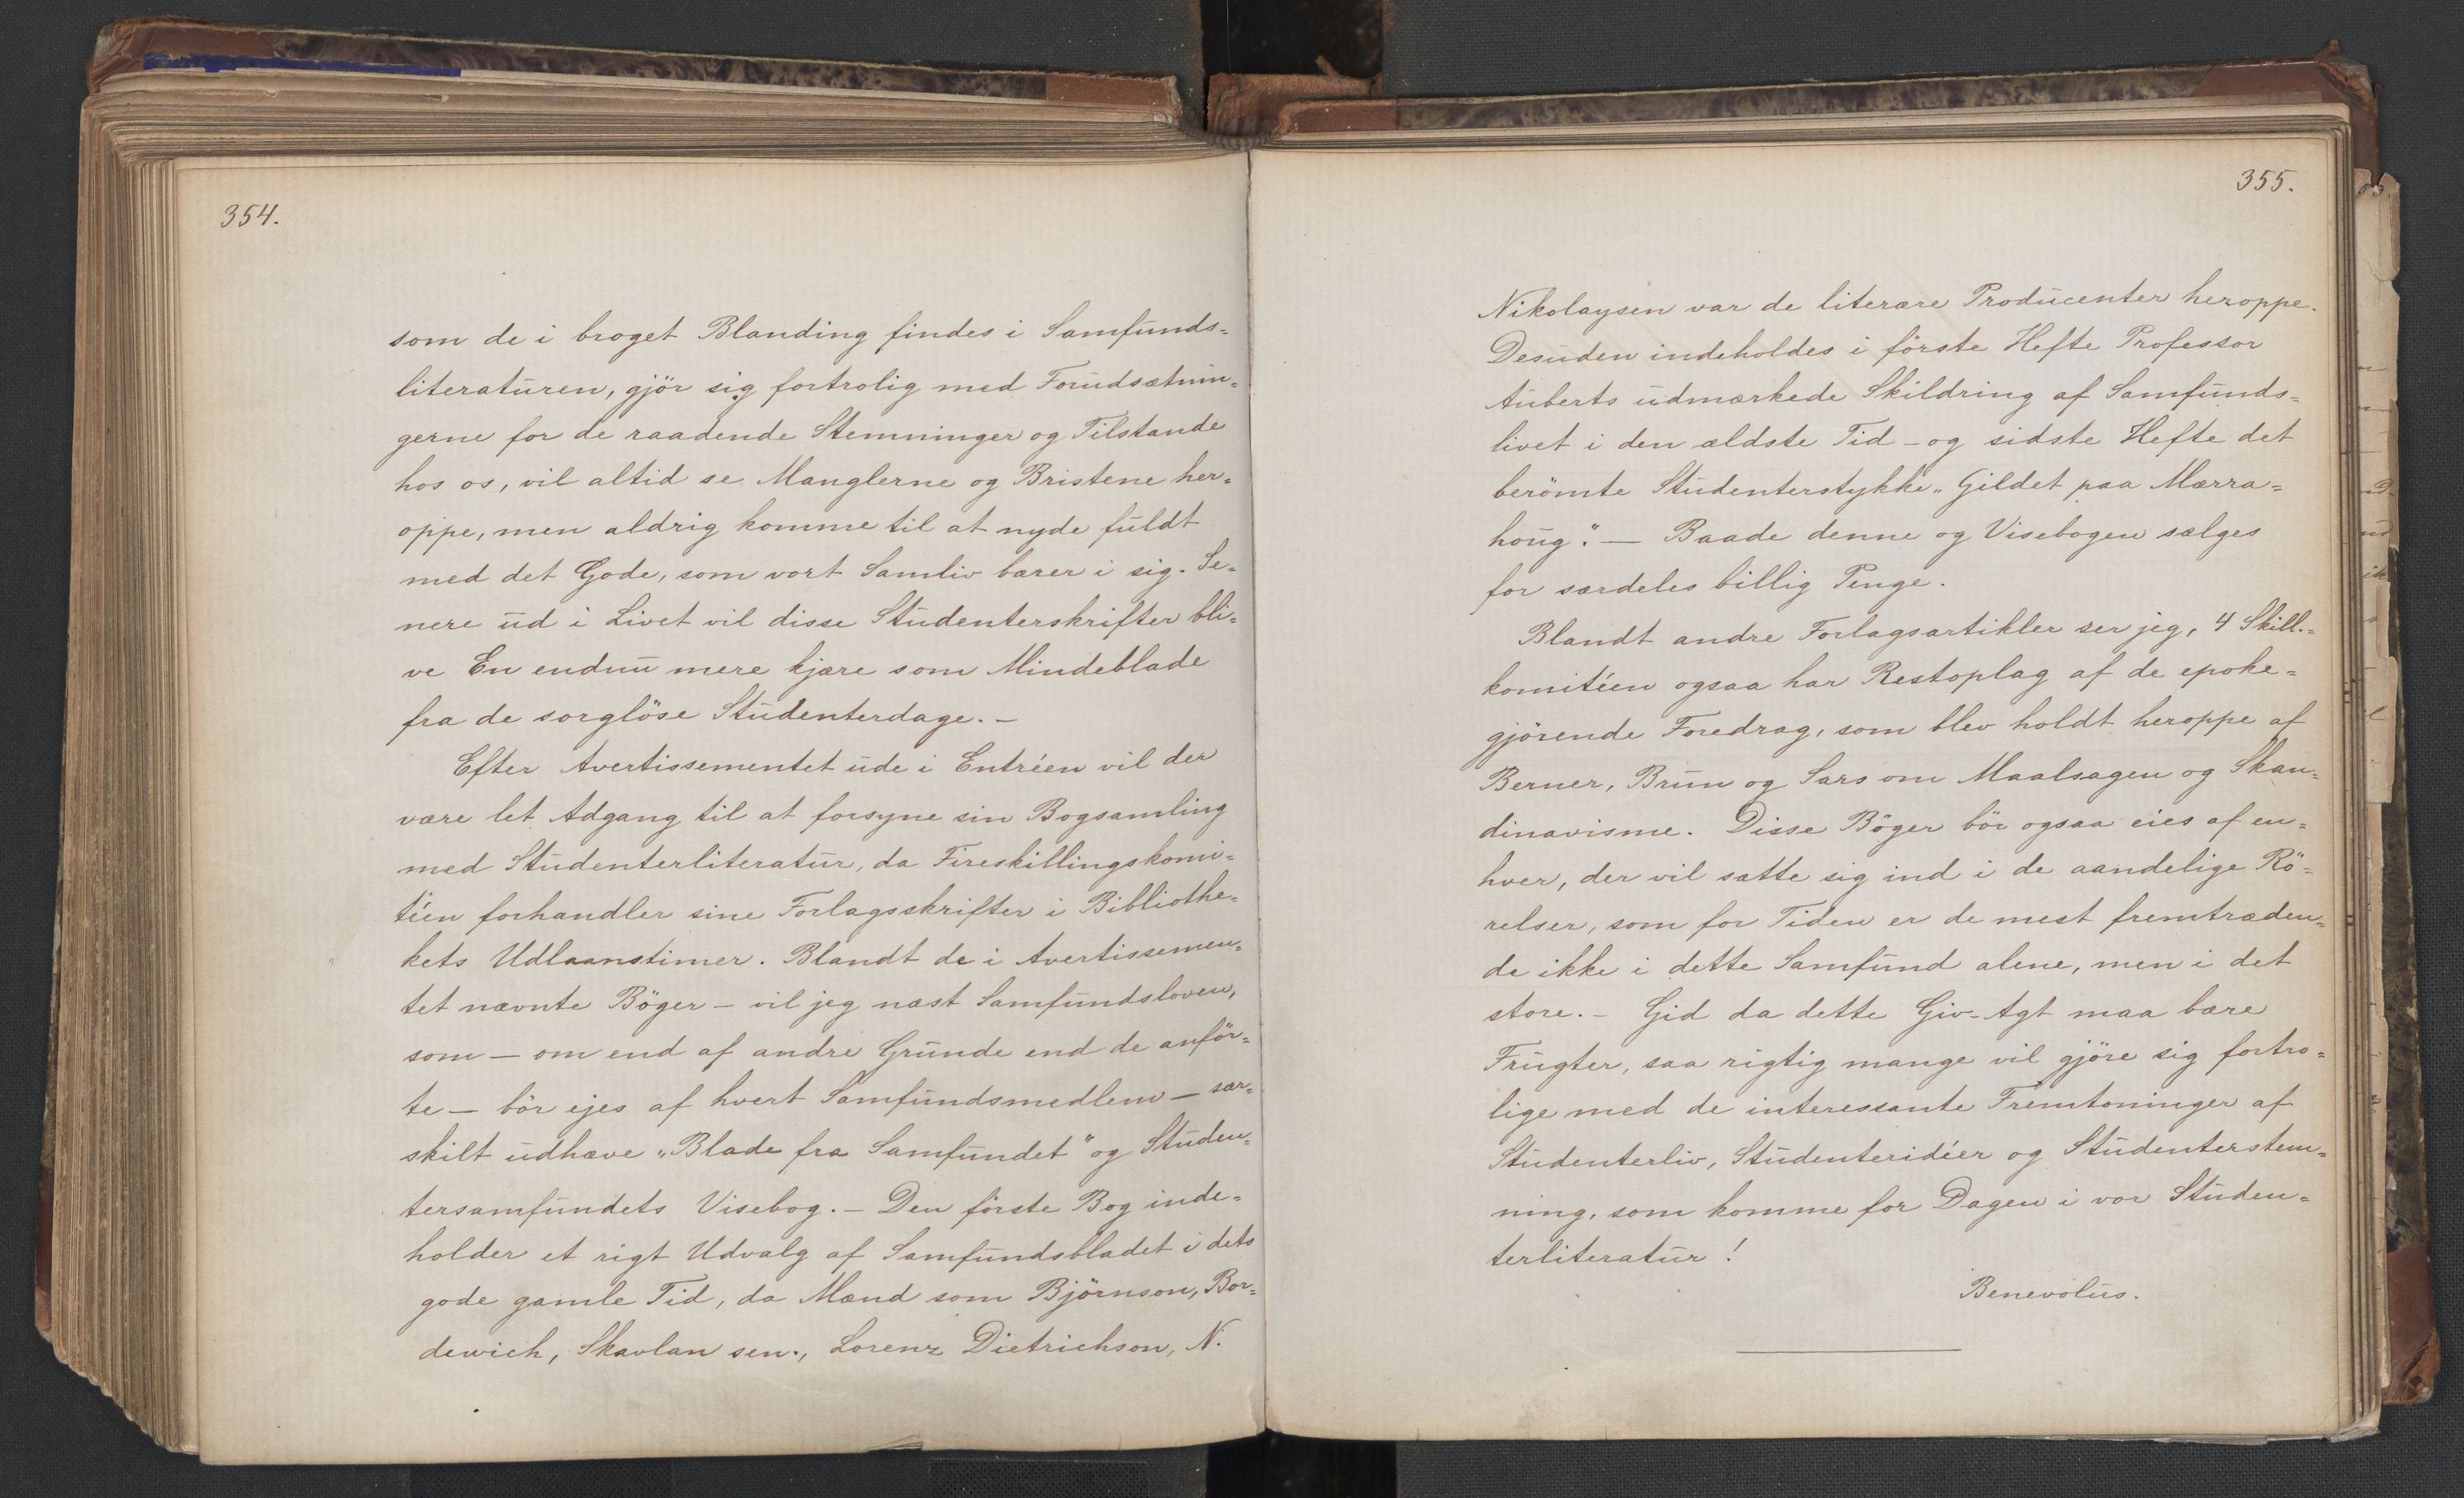 354.
som de i broget Blanding findes i Samfunds=
literaturen, gjör sig fortrolig med Forudsætnin=
gerne for de raadende Stemninger og Tilstande
hos os, vil altid se Manglerne og Bristene her=
oppe, men aldrig komme til at nyde fuldt
med det Gode, som vort Samliv bærer i sig. Se=
nere ud i Livet vil disse Studenterskrifter bli=
ve En endnu mere kjære som Mindeblade
fra de sorglöse Studenterdage. –
Efter Avertissementet ude i Entréen vil der
være let Adgang til at forsyne sin Bogsamling
med Studenterliteratur, da Fireskillingskomi=
téen forhandler sine Forlagsskrifter i Bibliothe=
kets Udlaanstimer. Blandt de i Avertissemen=
tet nævnte Böger – vil jeg næst Samfundsloven,
som – om end af andre Grunde end de anför=
te – bör ejes af hvert Samfundsmedlem – sær=
skilt udhæve „Blade fra Samfundet" og Studen=
tersamfundets Visebog. – Den förste Bog inde=
holder et rigt Udvalg af Samfundsbladet i dets
gode gamle Tid, da Mænd som Björnson, Bor=
dewich, Skavlan sen., Lorenz Dietrichson, N.
355.
Nikolaysen var de literære Producenter heroppe.
Desuden indeholdes i förste Hefte Professor
Auberts udmærkede Skildring af Samfunds=
livet i den ældste Tid – og sidste Hefte det
berömte Studenterstykke „Gildet paa Mærra=
houg". – Baade denne og Visebogen sælges
for særdeles billig Penge.
Blandt andre Forlagsartikler ser jeg, 4 Skill.=
komitéen ogsaa har Restoplag af de epoke=
gjörende Foredrag, som blev holdt heroppe af
Berner, Brun og Sars om Maalsagen og Skan=
dinavisme. Disse Böger bör ogsaa eies af en=
hver, der vil sætte sig ind i de aandelige Rö=
relser, som for Tiden er de mest fremtræden=
de ikke i dette Samfund alene, men i det
store. – Gid da dette Giv-Agt maa bære
Frugter, saa rigtig mange vil gjöre sig fortro=
lige med de interessante Fremtoninger af
Studenterliv, Studenteridéer og Studenterstem=
ning, som komme for Dagen i vor Studen=
terliteratur!
Benevolus.